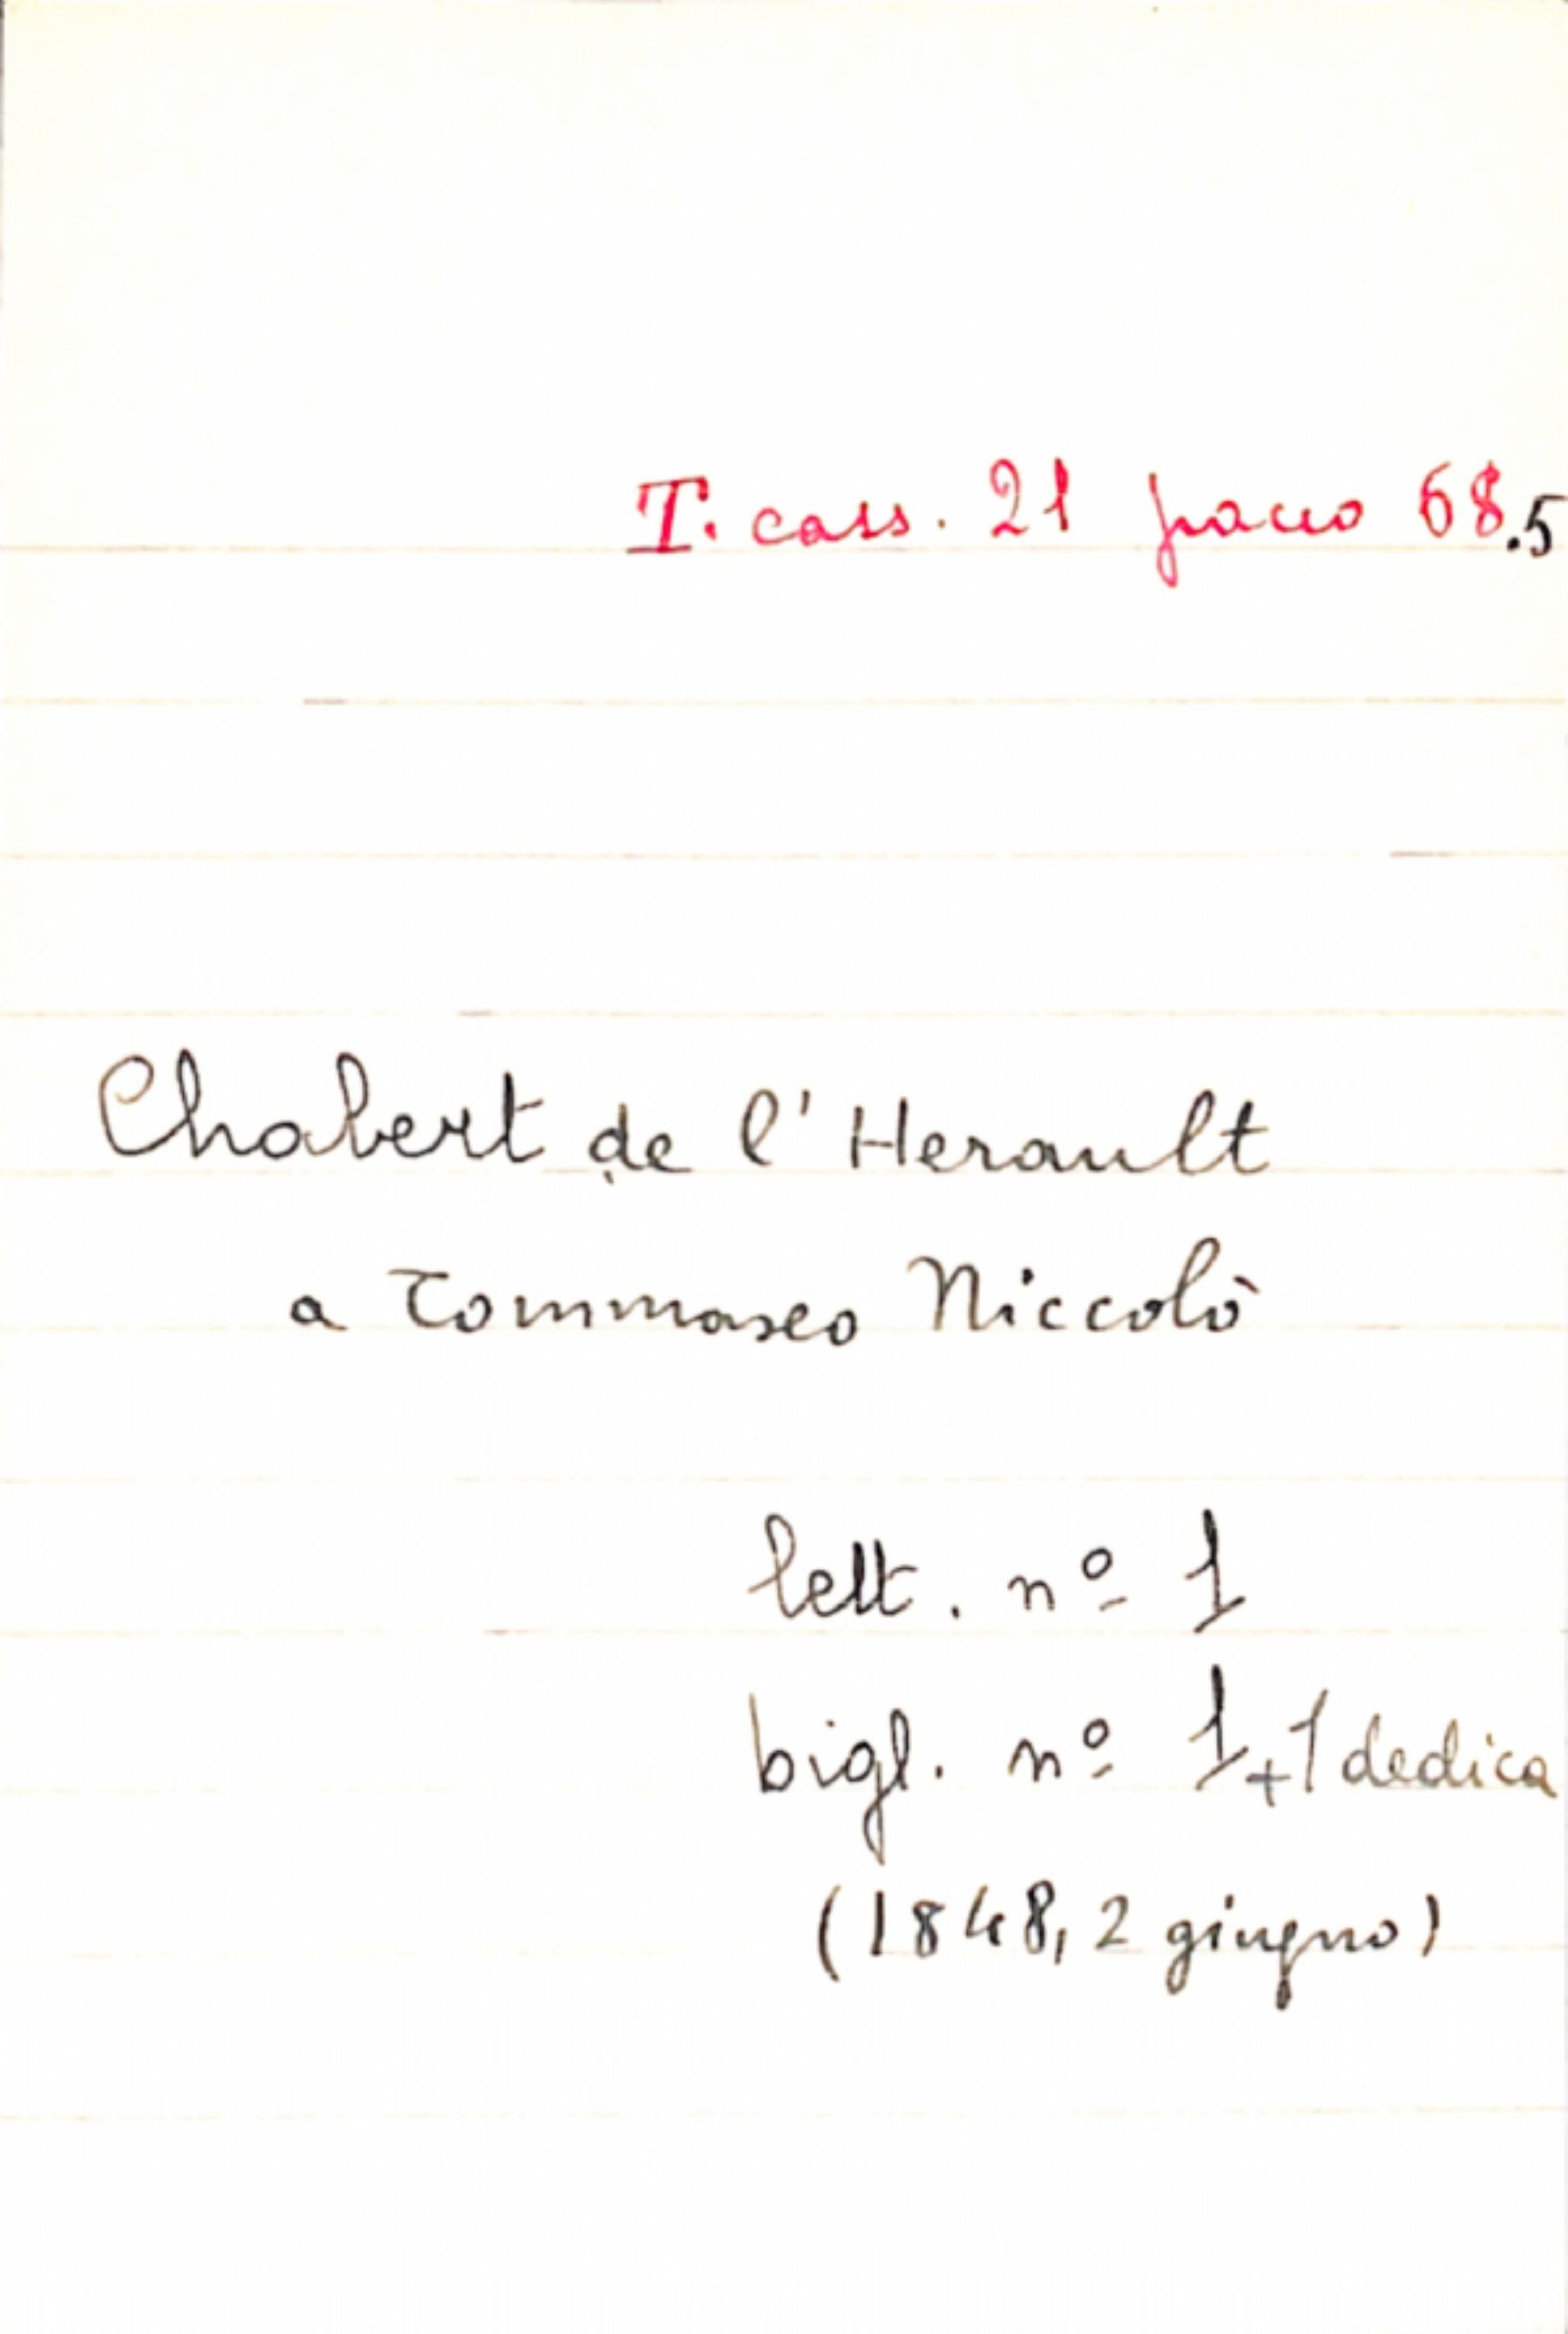 T. cass. 21 pacco 68.5
Chabert de l'Herault
a Tommaseo Niccolò
lett. nº 1
bigl. nº 1+1 dedica
(1848, 2 giugno)